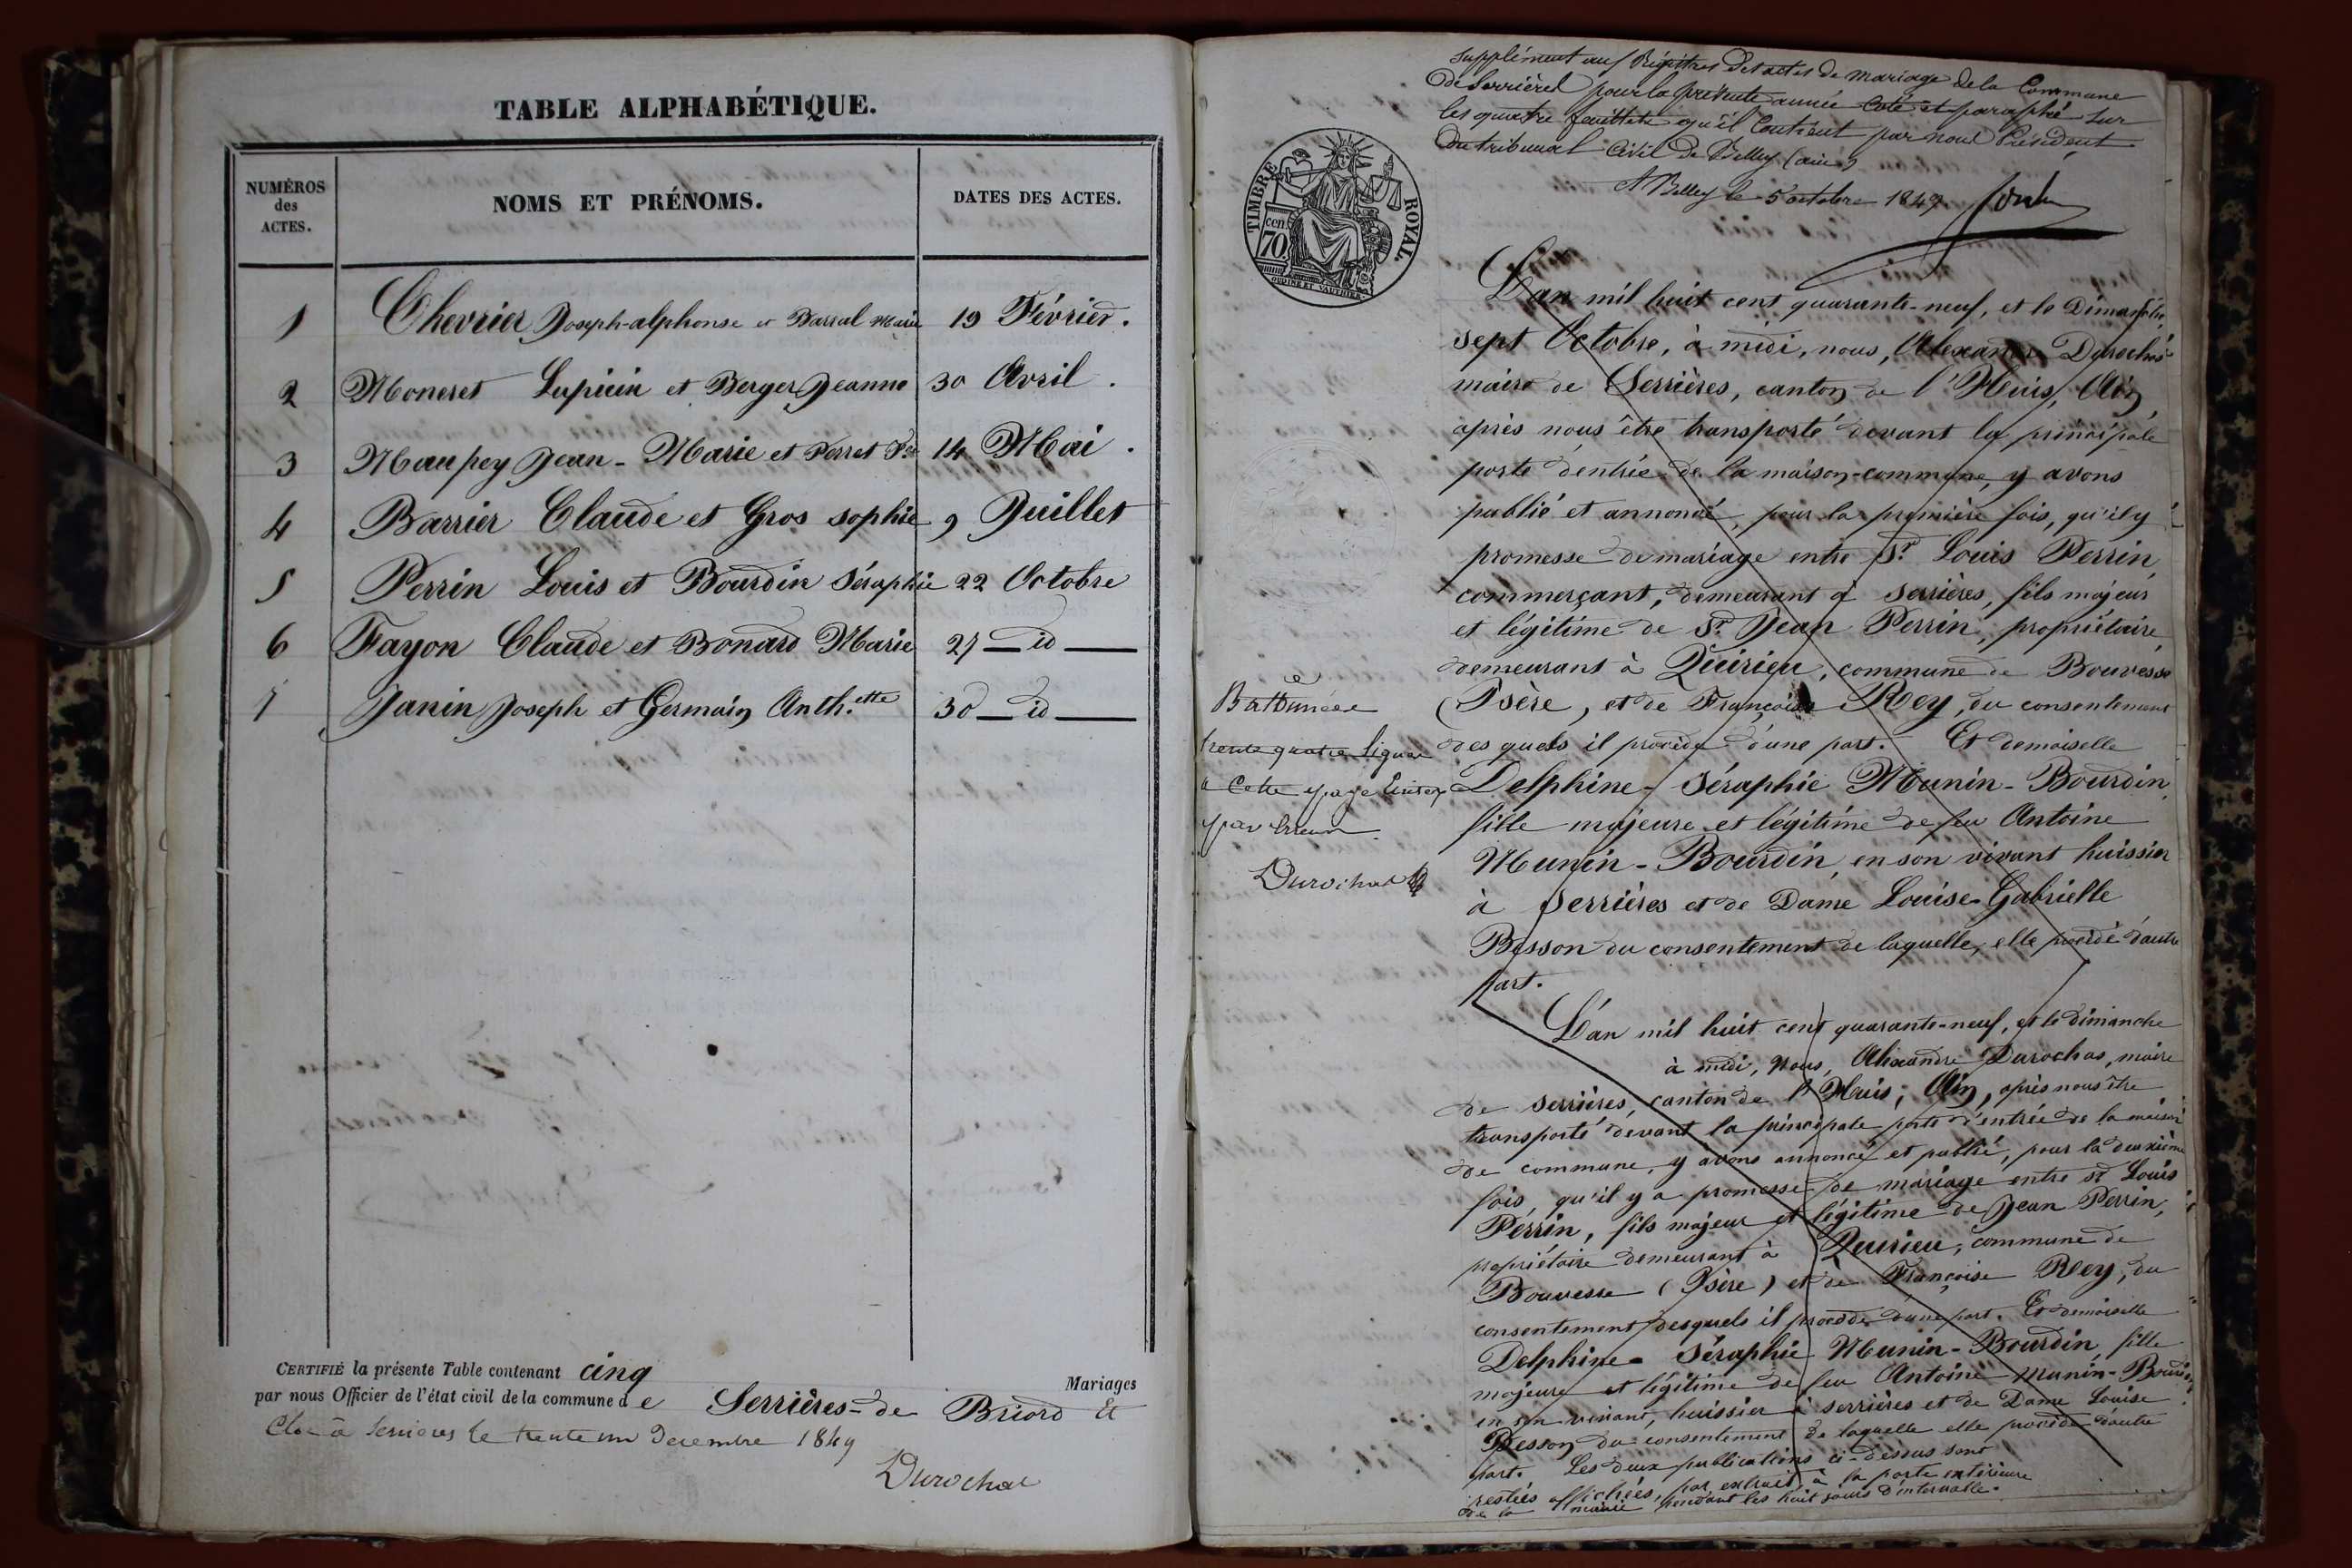 TABLE ALPHABÉTIQUE.
NUMÉROS des ACTES.
NOMS ET PRÉNOMS.
DATES DES ACTES.
1 Chevrier Joseph-alphonse et Barral Marie 19 Février.
2 Moneret Lupicin et Berger Jeanne 30 Avril.
3 Maupey Jean-Marie et Perret 14 Mai.
4 Barrier Claude et Gros sophie 9 Juillet
5 Perrin Louis et Bourdin Séraphie 22 Octobre
6 Fayon Claude et Bonard Marie 27 id
7 Janin Joseph et Germain Anth.ette 30 id
CERTIFIÉ la présente Table contenant cinq Mariages
par nous Officier de l'état civil de la commune de Serrières-de Briord Et
Clos à Serrières le trente un Decembre 1849
Durochat
supplément aux Régistres des actes de mariage de la Commune
de Serrières pour la présente année Coté et paraphé sur
les quatre feuillets qu'il Contient par nous Président
du tribunal Civil de Belley (ain)
A Belley le 5 octobre 1849
TIMBRE ROYAL.
70 cen.
L'an mil huit cent quarante-neuf, et le Dimanche,
sept Octobre, à midi, nous, Alexandre Durochas
maire de Serrières, canton de l'Huis, Ain,
après nous être transporté devant la principale
porte d'entrée de la maison-commune, y avons
publié et annoncé, pour la première fois, qu'il y
promesse de mariage entre Sr Louis Perrin,
commerçant, demeurant à Serrières, fils majeur
et légitime de Sr Jean Perrin, propriétaire,
demeurant à Quirieu, commune de Bouvesse
(Isère), et de Françoise Rey, du consentement
des quels il procède d'une part. Et demoiselle
Delphine-Séraphie Munin-Bourdin,
fille majeure et légitime de feu Antoine
Munin-Bourdin, en son vivant huissier
à Serrières et de Dame Louise-Gabrielle
Besson du consentement de laquelle, elle procède d'autre
part.
trente quatre lignes
à Cette page
par Erreur
Durochat
L'an mil huit cent quarante-neuf, et le dimanche
à midi, Nous, Alexandre Durochas, maire
de Serrières, canton de l'Huis, Ain, après nous être
transporté devant la principale porte d'entrée de la maison
de commune, y avons annoncé et publié, pour la deuxième
fois, qu'il y a promesse de mariage entre sr Louis
Perrin, fils majeur et légitime de Jean Perrin,
propriétaire demeurant à Quirieu, commune de
Bouvesse (Isère) et de Françoise Rey, du
consentement desquels il procède d'une part. Et demoiselle
Delphine-Séraphie Munin-Bourdin, fille
majeure et légitime de feu Antoine Munin-Bourdin,
en son vivant, huissier à serrières et de Dame Louise
Besson du consentement de laquelle elle procède d'autre
part. Les deux publications ci-dessus sont
restées affichées, par extrait à la porte extérieure
de la mairie pendant les huit jours d'intervalle.